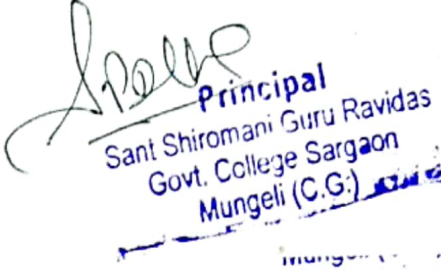 Principal
Sant Shiromani Guru Ravidas
Govt. College Sargaon
Mungeli (C.G.)